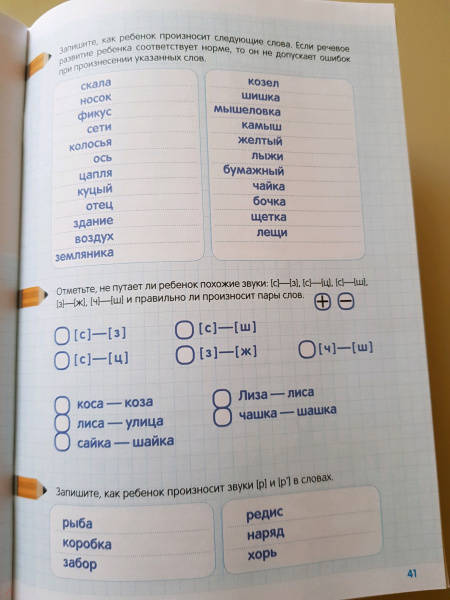 Запишите, как ребенок произносит следующие слова. Если речевое
развитие ребенка соответствует норме, то он не допускает ошибок
при произнесении указанных слов.
скала
носок
фикус
сети
колосья
ось
цапля
куцый
отец
здание
воздух
земляника
козел
шишка
мышеловка
камыш
желтый
лыжи
бумажный
чайка
бочка
щетка
лещи
Отметьте, не путает ли ребенок похожие звуки: [с]—[з], [с]—[ц], [с]—[ш],
[з]—[ж], [ч]—[ш] и правильно ли произносит пары слов. + −
[с]—[з]
[с]—[ш]
[с]—[ц]
[з]—[ж]
[ч]—[ш]
коса — коза
лиса — улица
сайка — шайка
Лиза — лиса
чашка — шашка
Запишите, как ребенок произносит звуки [р] и [р'] в словах.
рыба
коробка
забор
редис
наряд
хорь
41